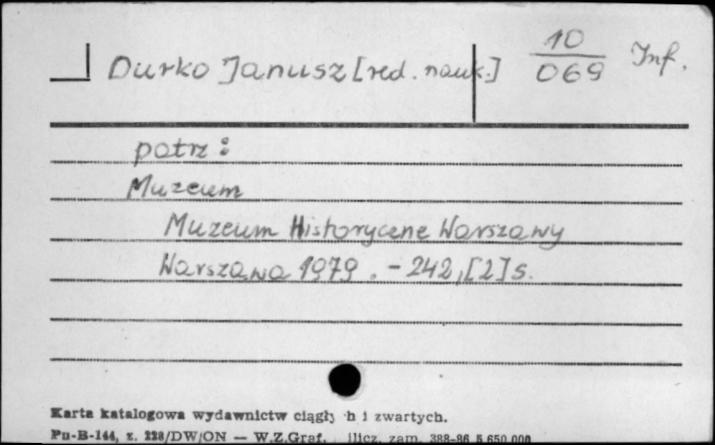 Durko Janusz [red. nauk.] 10/069 Inf.
patrz:
Muzeum
Muzeum Historyczne Warszawy
Warszawa 1979. - 242, [2] s.
Karta katalogowa wydawnictw ciągły h i zwartych.
Pu-B-144, z. 228/DW/ON — W.Z.Graf. zam. 388-86 5 650 000